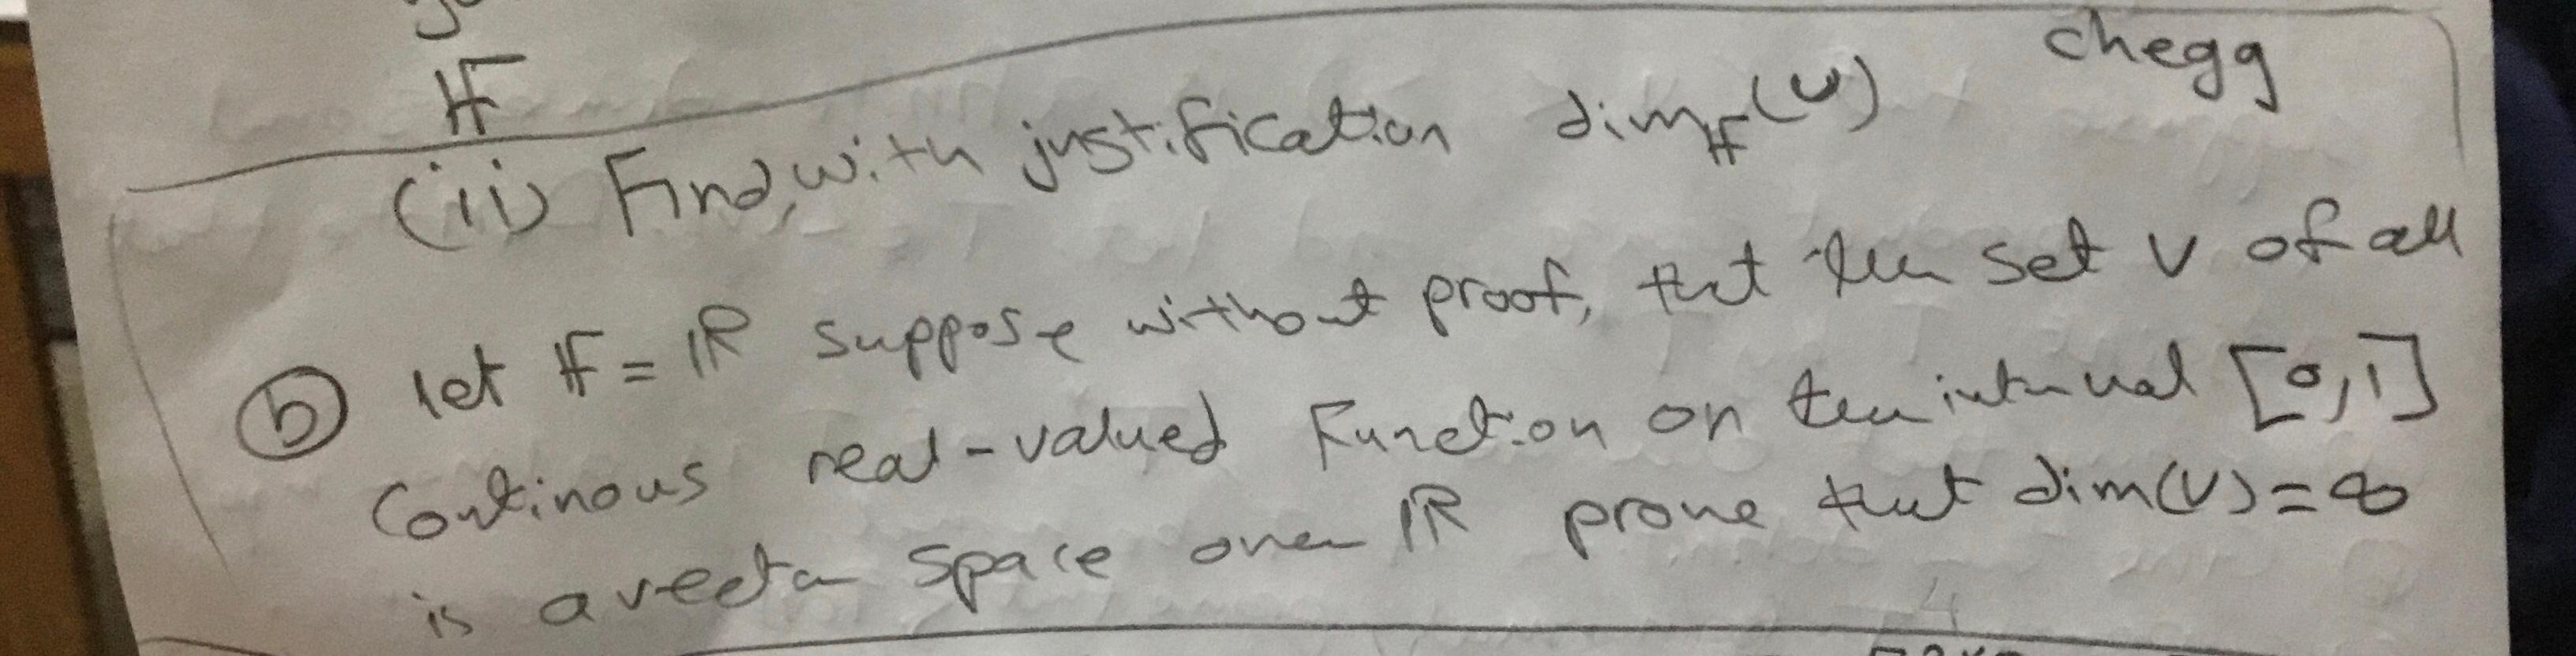 F
chegg
(ii) Find, with justification dim_F(U)
(b) let F = R suppose without proof, that the set V of all
Continous real-valued Function on the interval [0,1]
is a vector space over R prove that dim(V) = ∞